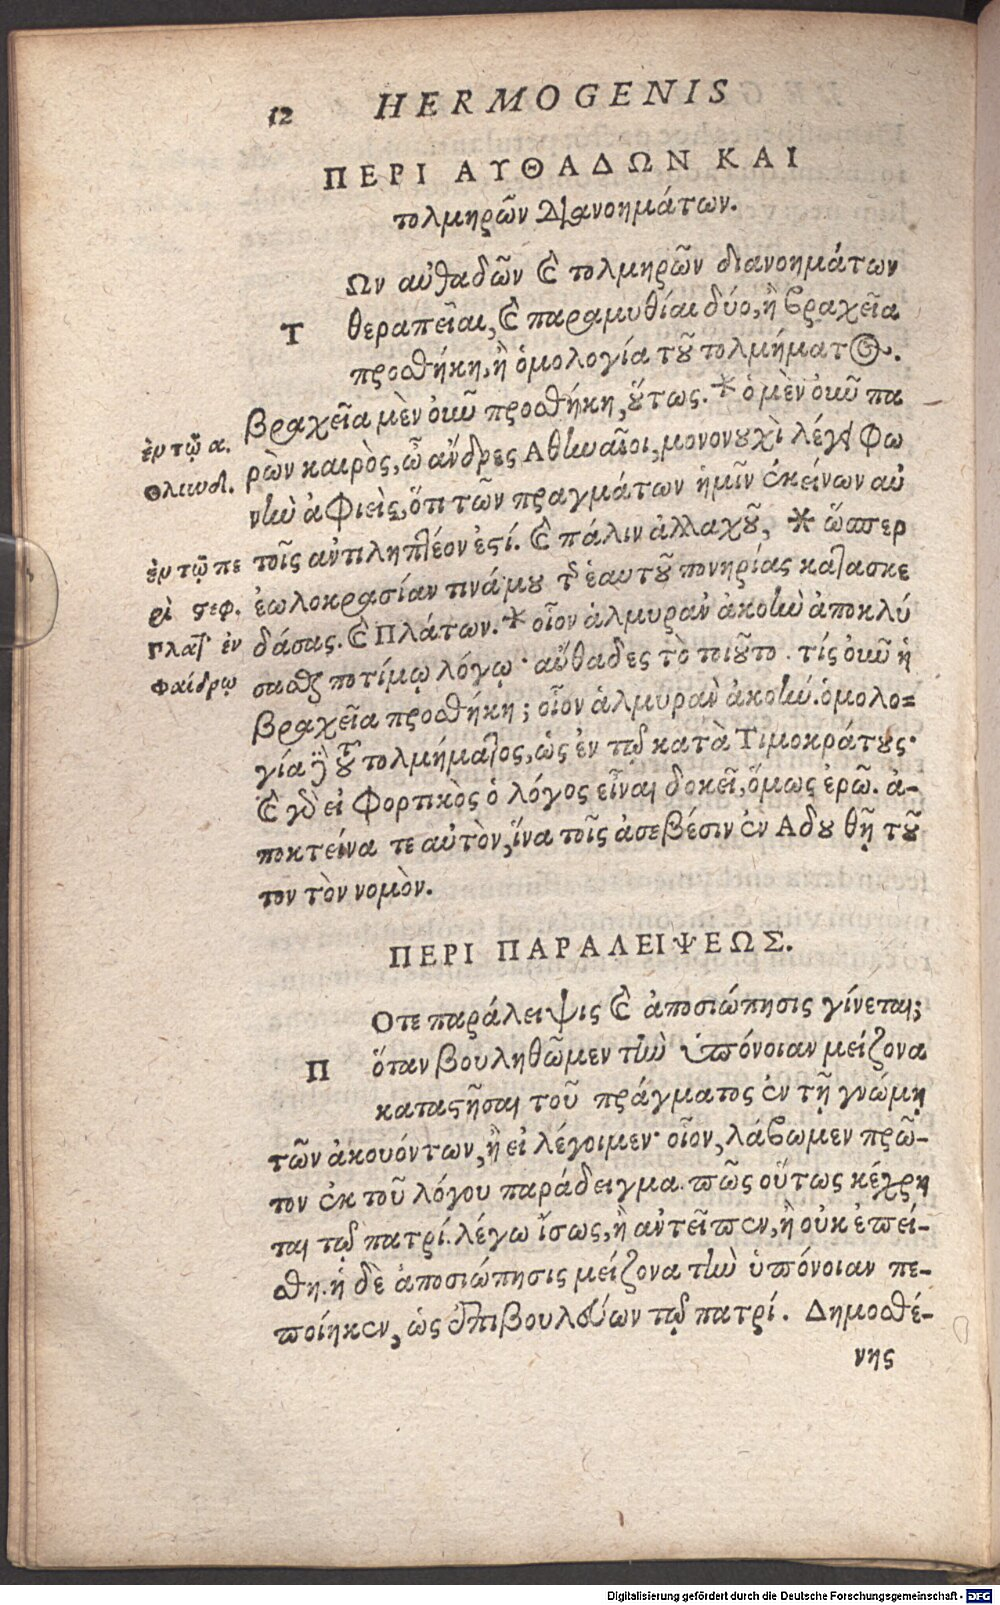 12 HERMOGENIS
ΠΕΡΙ ΑΥΘΑΔΩΝ ΚΑΙ
τολμηρῶν διανοημάτων.
Ων αὐθαδῶν καὶ τολμηρῶν διανοημάτων
Τ θεραπεῖαι, καὶ παραμυθίαι δύο, ἢ βραχεῖα
προσθήκη, ἢ ὁμολογία τοῦ τολμήματος.
βραχεῖα μὲν οὖν προσθήκη, οὕτως. * ὁ μὲν οὖν πα
ἐν τῷ α.
ρὼν καιρὸς, ὦ ἄνδρες Ἀθηναῖοι, μονονουχὶ λέγει φω
ὀλυνθ.
νὴν ἀφιεὶς, ὅτι τῶν πραγμάτων ἡμῖν ἐκείνων αὐ
τοῖς ἀντιληπτέον ἐστί. καὶ πάλιν ἀλλαχοῦ, * ὥσπερ
ἐν τῷ πε
ἑωλοκρασίαν τινά μου τῆς ἑαυτοῦ πονηρίας κατασκε
ρὶ στεφ.
δάσας. καὶ Πλάτων. * οἷον ἁλμυρὰν ἀκοὴν ἀποκλύ
Πλάτ. ἐν
σασθαι ποτίμῳ λόγῳ· αὔθαδες τὸ τοιοῦτο. τίς οὖν ἡ
φαίδρῳ
βραχεῖα προσθήκη; οἷον ἁλμυρὰν ἀκοήν. ὁμολο=
γία δὲ τοῦ τολμήματος, ὡς ἐν τῷ κατὰ Τιμοκράτους·
καὶ γὰρ εἰ φορτικὸς ὁ λόγος εἶναι δοκεῖ, ὅμως ἐρῶ. ἀ-
ποκτείνα τε αὐτὸν, ἵνα τοῖς ἀσεβέσιν ἐν Αδου θῇ τοῦ
τον τὸν νομὸν.
ΠΕΡΙ ΠΑΡΑΛΕΙΨΕΩΣ.
Οτε παράλειψις καὶ ἀποσιώπησις γίνεται;
Π ὅταν βουληθῶμεν τὴν ὑπόνοιαν μείζονα
καταστῆσαι τοῦ πράγματος ἐν τῇ γνώμῃ
τῶν ἀκουόντων, ἢ εἰ λέγοιμεν· οἷον, λάβωμεν πρῶ-
τον ἐκ τοῦ λόγου παράδειγμα. πῶς οὕτως κέχρη
ται τῷ πατρί. λέγω ἴσως, ἢ ἀντεῖπεν, ἢ οὐκ ἐπεί-
σθη. ἡ δὲ ἀποσιώπησις μείζονα τὴν ὑπόνοιαν πε-
ποίηκεν, ὡς ἐπιβουλεύων τῷ πατρί. Δημοσθέ-
νης
Digitalisierung gefördert durch die Deutsche Forschungsgemeinschaft - DFG